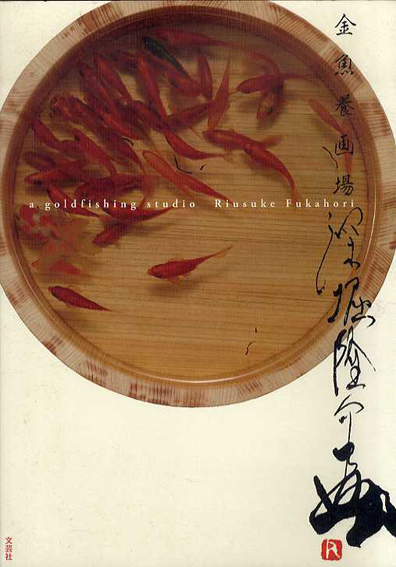 金魚養画場
a goldfishing studio Riusuke Fukahori
深堀隆介
R
文芸社